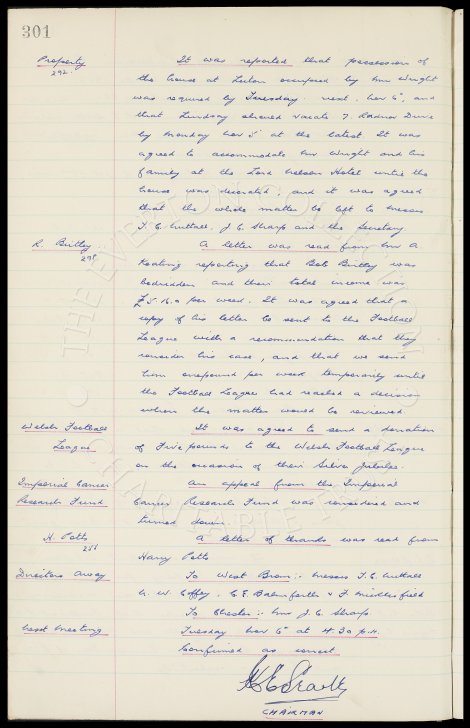 301
Property
292
It was reported that possession of
the house at Luton occupied by Mr Wright
was required by Tuesday next, Nov 6th, and
that Lindsay should vacate 7. Radnor Drive
by Monday Nov 5th at the latest. It was
agreed to accommodate Mr Wright and his
family at the Lord Nelson Hotel until the
house was decorated, and it was agreed
that the whole matter be left to Messrs
T. C. Nuttall, J. C. Sharp and the Secretary
R. Burtley
298
A letter was read from Mr A.
Keating reporting that Bob Burtley was
bedridden and their total income was
per week. It was agreed that a
copy of his letter be sent to the Football
League with a recommendation that they
consider his case, and that we send
him one pound per week temporarily until
the Football League had reached a decision
when the matter would be reviewed
Welsh Football
League
It was agreed to send a donation
of Five pounds to the Welsh Football League
on the occasion of their Silver Jubilee.
Imperial Cancer
Research Fund
An appeal from the Imperial
Cancer Research Fund was considered and
turned down
H. Potts
251
A letter of thanks was read from
Harry Potts
Directors Away
To West Brom:- Messrs T. C. Nuttall
N. W. Coffey, C. E. Balmforth & F. Micklesfield
To Chester:- Mr J. C. Sharp
Next Meeting
Tuesday Nov 6th at 4.30 p.m.
Confirmed as correct
CHAIRMAN
THE EVERTON COLLECTION
CHARITABLE TRUST